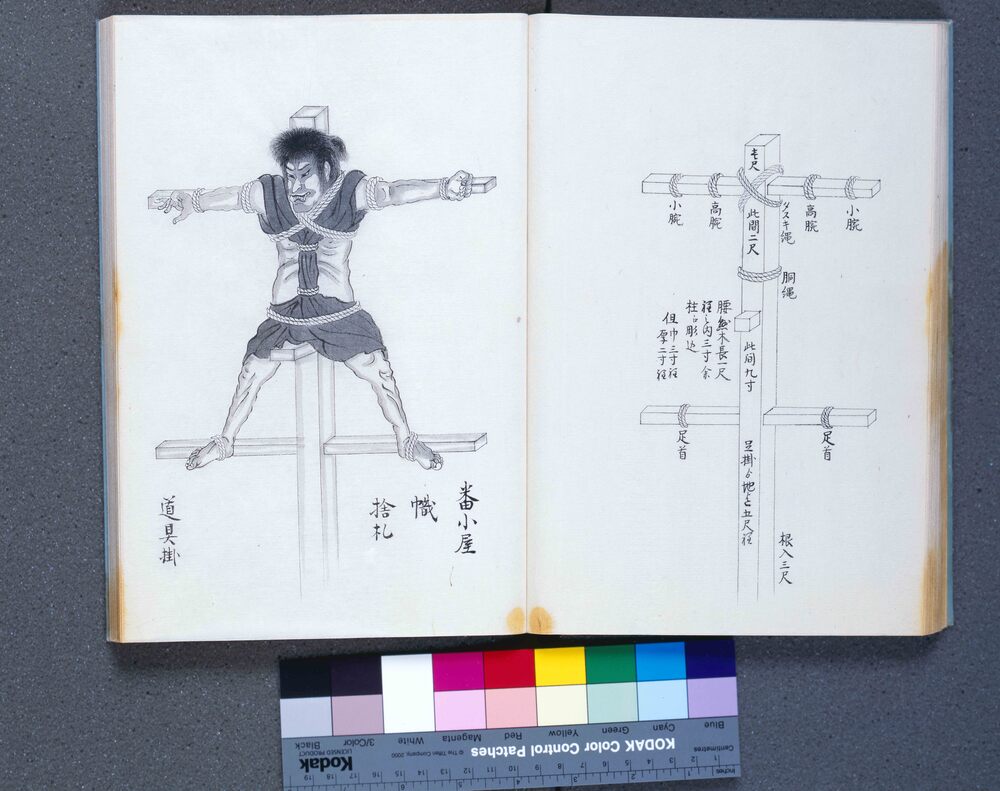 壱尺
小腕
高腕
タスキ縄
此間二尺
高腕
小腕
胴縄
腰懸木長一尺
程之内三寸余
柱江彫込
但巾三寸程
厚二寸程
此間九寸
足首
足首
足掛ゟ地迄五尺程
根入三尺
番小屋
幟
捨札
道具掛
KODAK Color Control Patches
© The Tiffen Company, 2000
Kodak
LICENSED PRODUCT
Blue
Cyan
Green
Yellow
Red
Magenta
White
3/Color
Black
Centimetres
Inches
1 2 3 4 5 6 7 8 9 10 11 12 13 14 15 16 17 18 19